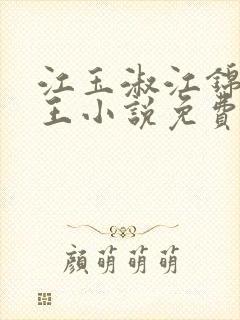 江玉淑江锦
王小說免費
顏萌萌萌